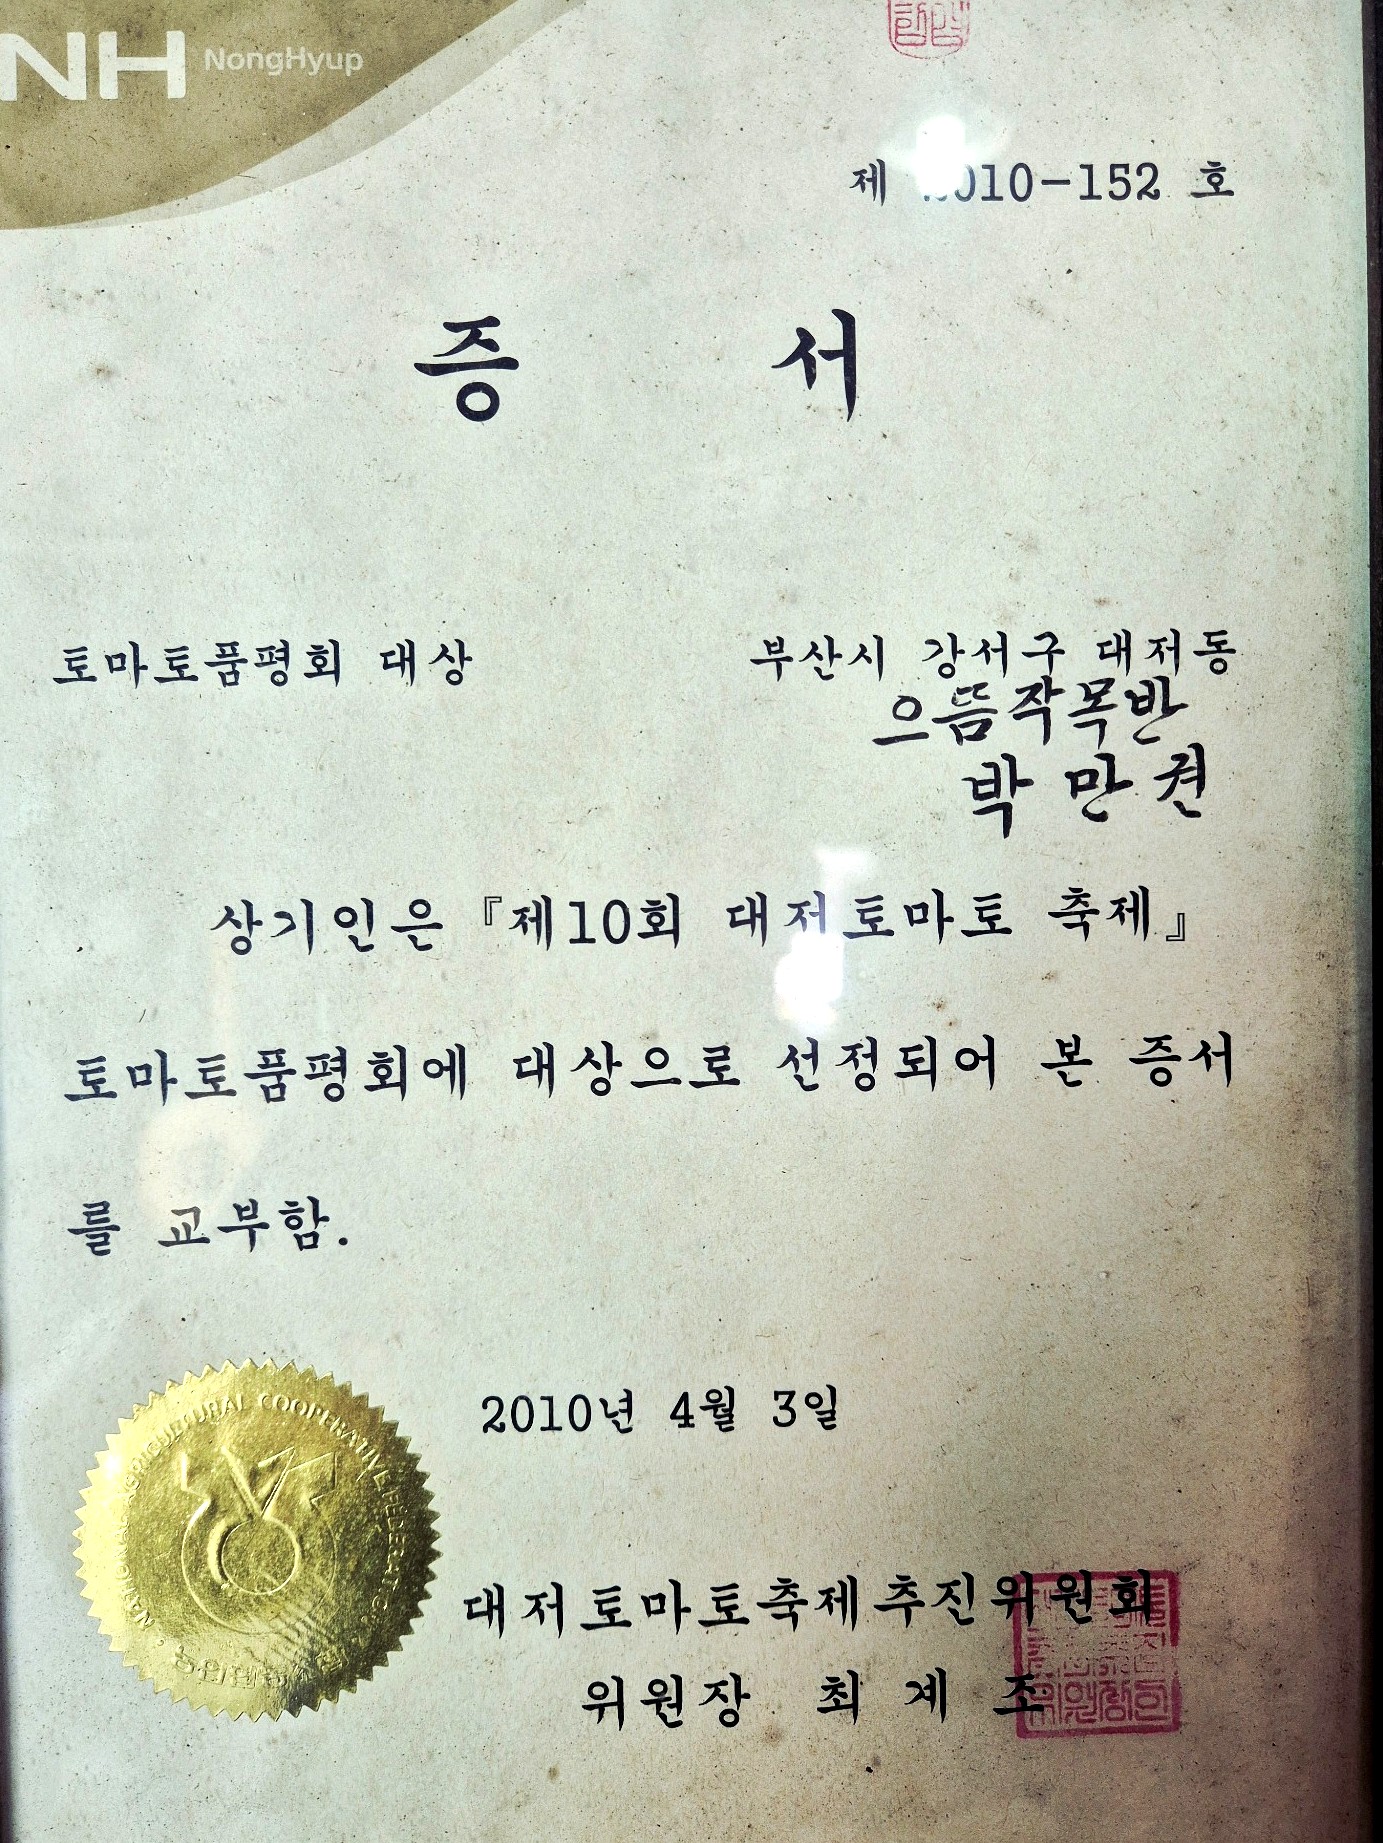 NH NongHyup
제 2010-152 호
증 서
토마토품평회 대상
부산시 강서구 대저동
으뜸작목반
박 만 권
상기인은 『제10회 대저토마토 축제』
토마토품평회에 대상으로 선정되어 본 증서
를 교부함.
2010년 4월 3일
NATIONAL AGRICULTURAL COOPERATIVE FEDERATION
대저토마토축제추진위원회
위원장 최 계 조